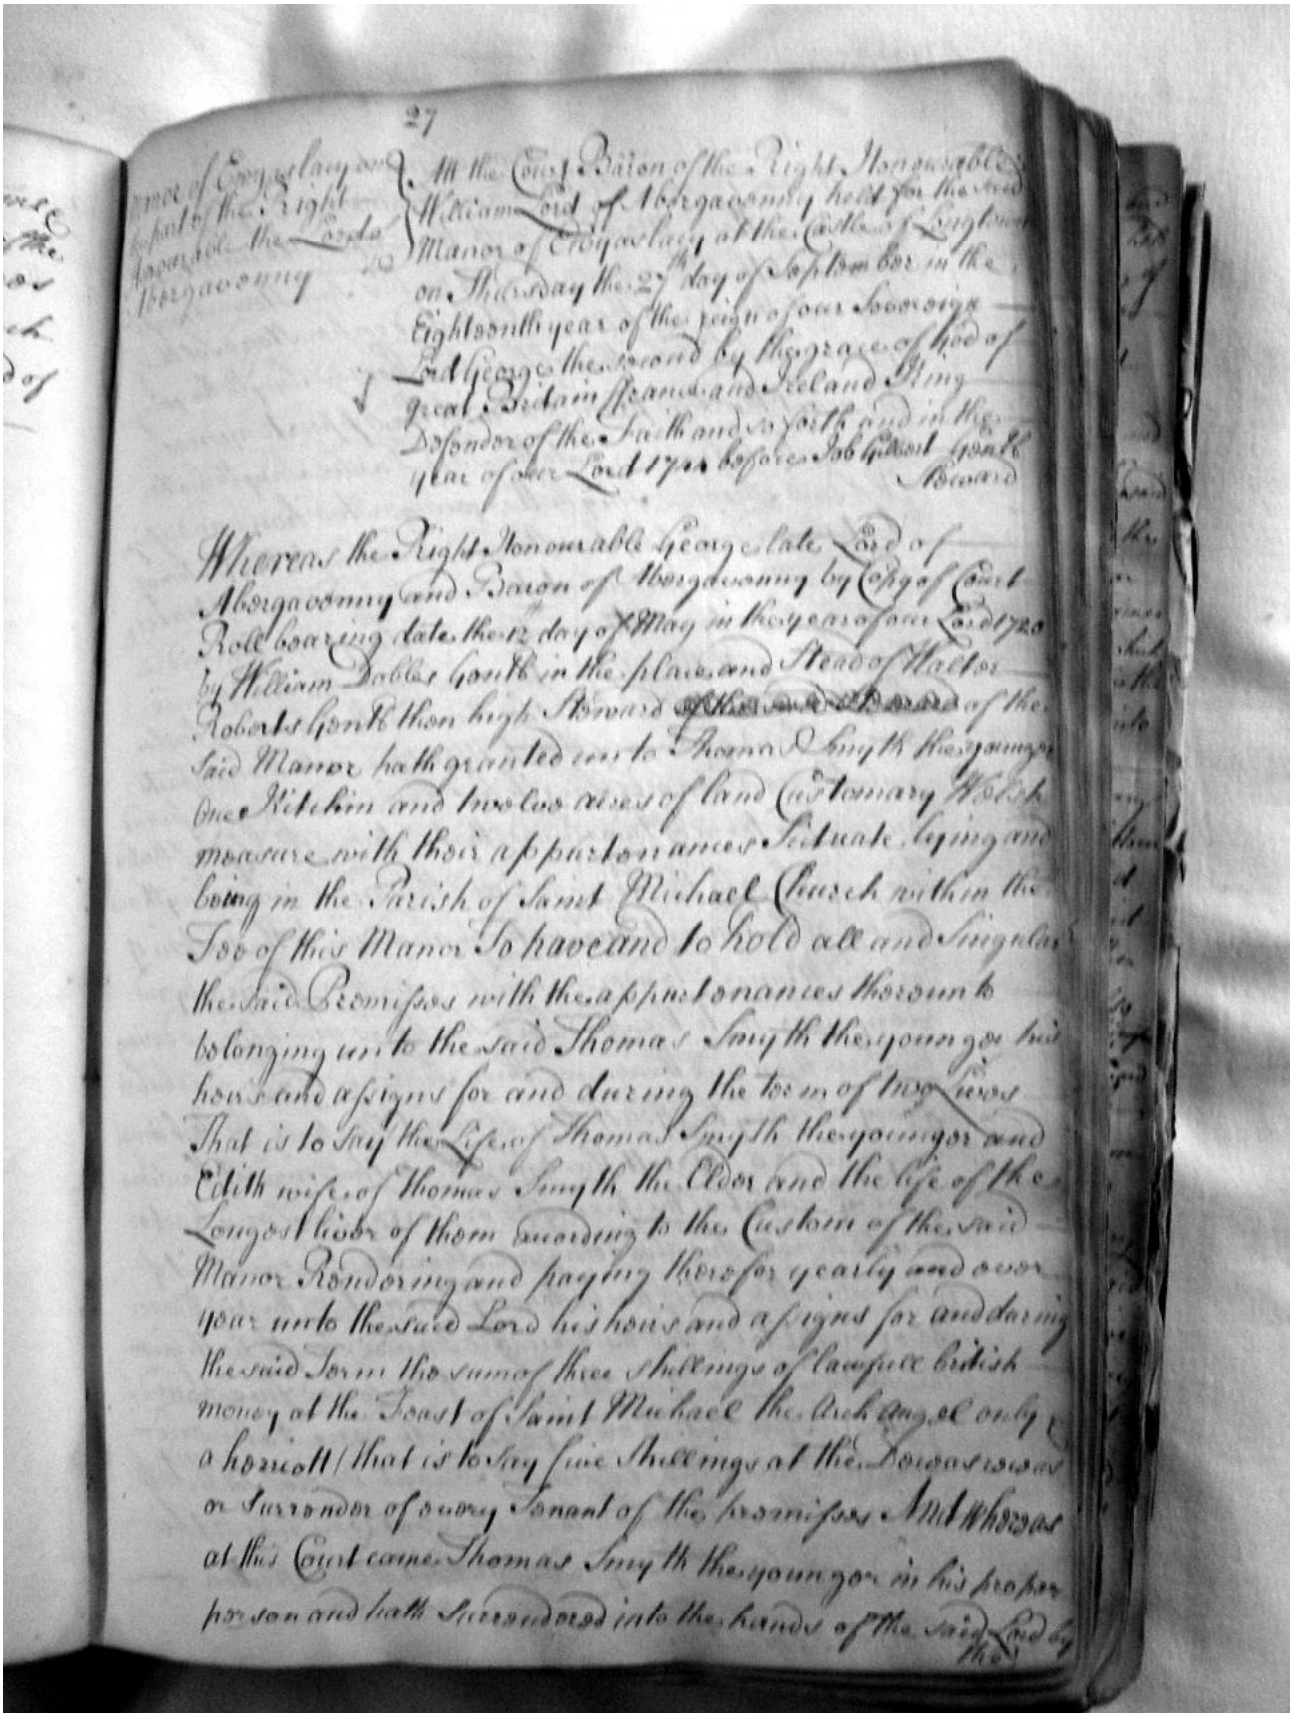 27
Manor of Ewyaslacy on
the part of the Right
Honourable the Lord
Abergavenny
At the Court Baron of the Right Honourable
William Lord of Abergavenny held for the said
Manor of Ewyaslacy at the Castle of Longtown
on Thursday the 27th day of September in the
Eighteenth year of the reign of our Sovereign
Lord George the second by the grace of God of
great Britain ffrance and Ireland King
Defender of the Faith and so forth and in the
year of our Lord 1744 before Job Gilbert Gentl
Steward
Whereas the Right Honourable George late Lord of
Abergavenny and Baron of Abergavenny by Copy of Court
Roll bearing date the 12th day of May in the year of our Lord 1720
by William Dobles Gentl in the place and Stead of Walter
Roberts Gentl then high Steward of the
said Manor hath granted unto Thomas Smyth the younger
One Kitchin and twelve acres of land Customary Welsh
measure with their appurtenances Scituate lying and
being in the Parish of Saint Michael Church within the
Fee of this Manor To have and to hold all and Singular
the said Premisses with the appurtenances thereunto
belonging unto the said Thomas Smyth the younger his
heirs and assigns for and during the term of two Lives
That is to say the Life of Thomas Smyth the younger and
Edith wife of Thomas Smyth the Elder and the life of the
Longest liver of them according to the Custom of the said
Manor Rendering and paying therefor yearly and ever
year unto the said Lord his heirs and assigns for and during
the said Term the sum of three shillings of lawfull british
money at the Feast of Saint Michael the Arch Angel only &
a herriott (that is to say five Shillings at the Decease
or Surrender of every Tenant of the premisses And Whereas
at this Court came Thomas Smyth the younger in his proper
person and hath Surrendered into the hands of the said Lord by
the